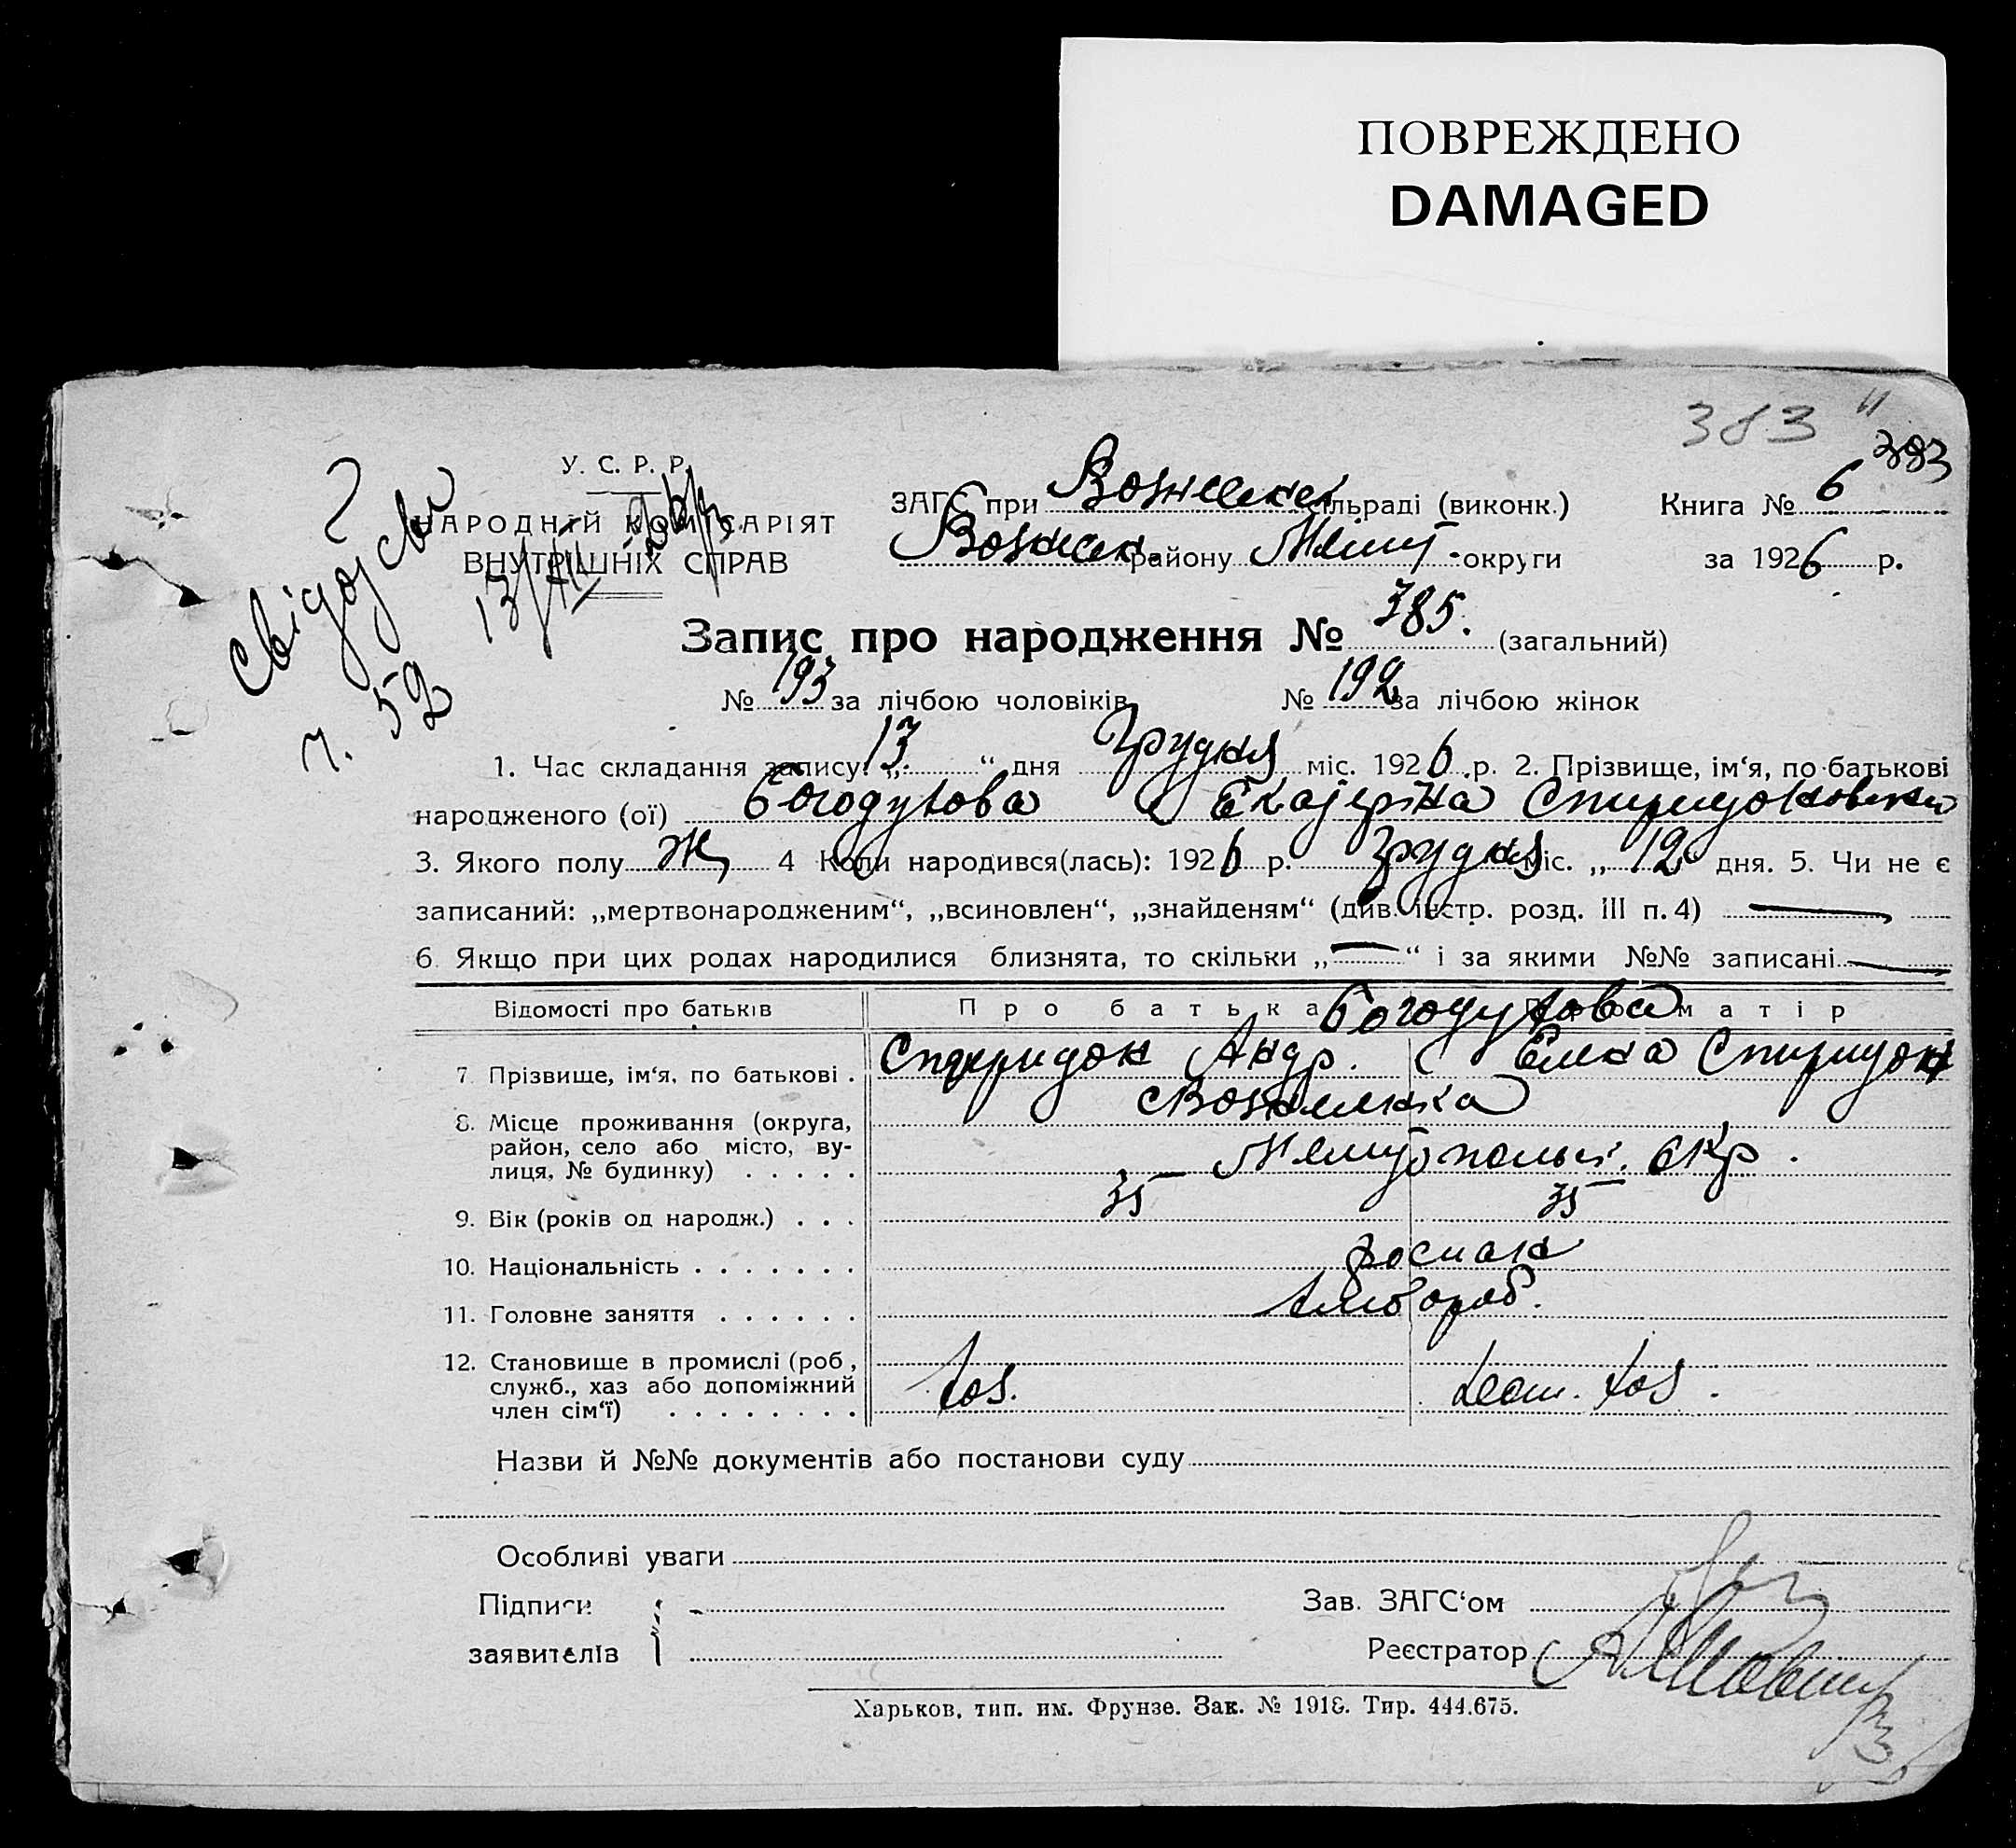 ПОВРЕЖДЕНО
DAMAGED
383
383
У. С. Р. Р.
НАРОДНІЙ КОМІСАРІЯТ
ВНУТРІШНІХ СПРАВ
13/XII
ч. 52
ЗАГС при Вознесенс сільраді (виконк.) Книга № 6
Вознесен. району Меліт. округи за 1926 р.
Запис про народження № 385. (загальний)
№ 193 за лічбою чоловіків № 192 за лічбою жінок
1. Час складання запису: „13“ дня Грудня міс. 1926 р. 2. Прізвище, ім‘я, по-батькові
народженого (ої) Богодухова Екатеріна Спиридоновна
3. Якого полу ж 4 Коли народився(лась): 1926 р. грудня міс. „12“ дня. 5. Чи не є
записаний: „мертвонародженим“, „всиновлен“, „знайденям“ (див. інстр. розд. III п. 4) —
6. Якщо при цих родах народилися близнята, то скільки „—“ і за якими №№ записані —
Відомості про батьків Про батька Про матір
Богодухова
7. Прізвище, ім‘я, по батькові . Спиридон Андр. Елена Спиридон
8. Місце проживання (округа,
район, село або місто, ву-
лиця, № будинку) . . . . .
Вознесенка
Мелитопольск. окр.
9. Вік (років од народж.) . . . 35 35
10. Національність . . . . . . . росиян
11. Головне заняття . . . . . . хлібороб.
12. Становище в промислі (роб.,
служб., хаз або допоміжний
член сім‘ї) . . . . . . . .
хоз. хоз.
Назви й №№ документів або постанови суду
Особливі уваги
Підписи
заявителів
Зав. ЗАГС‘ом
Реєстратор
Харьков, тип. им. Фрунзе. Зак. № 1918. Тир. 444.675.